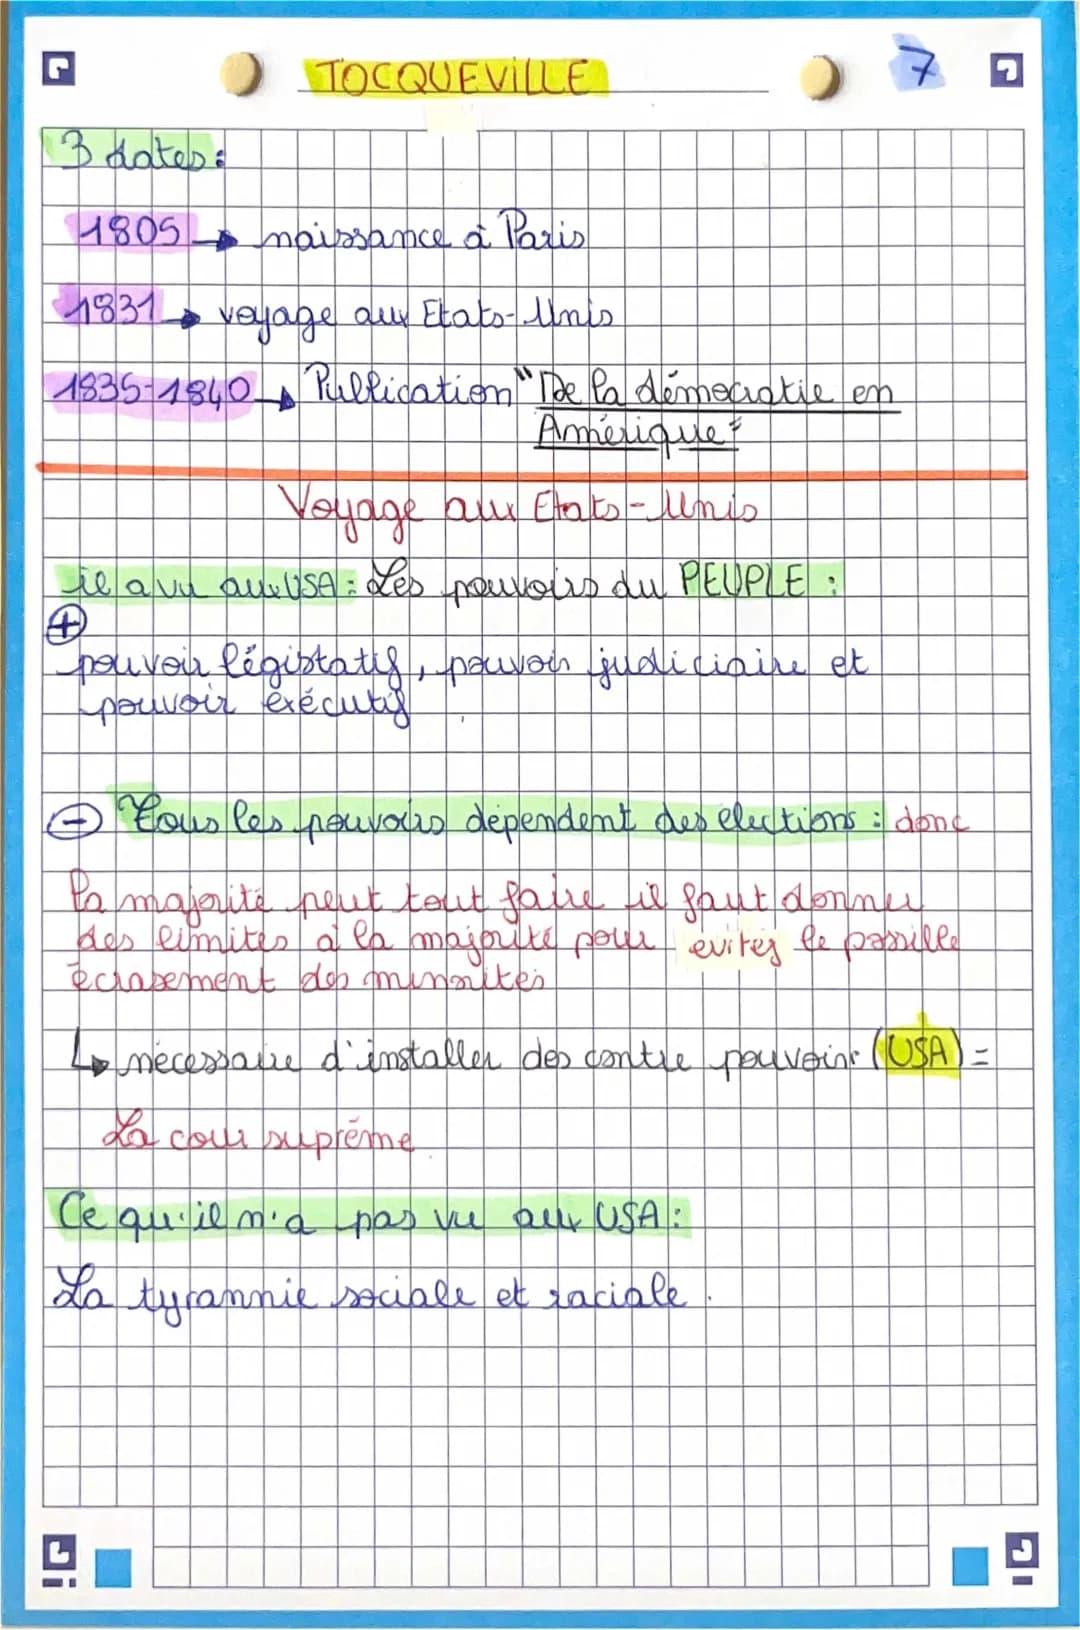 TOCQUEVILLE
7
3 dates:
1805 → naissance à Paris
1831 → voyage aux Etats-Unis
1835-1840 → Publication "De la démocratie en
Amérique"
Voyage aux Etats-Unis
il a vu aux USA: Les pouvoirs du PEUPLE :
+
pouvoir législatif, pouvoir judiciaire et
pouvoir exécutif
- Tous les pouvoirs dépendent des élections : donc
la majorité peut tout faire il faut donner
des limites à la majorité pour evites le possible
écrasement des minorités
↳ nécessaire d'installer des contre pouvoirs (USA) =
La cour suprême
Ce qu'il n'a pas vu aux USA:
La tyrannie sociale et raciale.